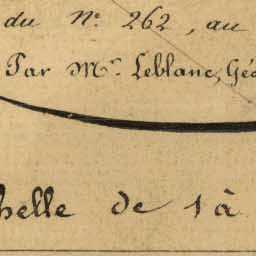 du N.° 262, au
Par M.r Leblanc, Géo
helle de 1 à